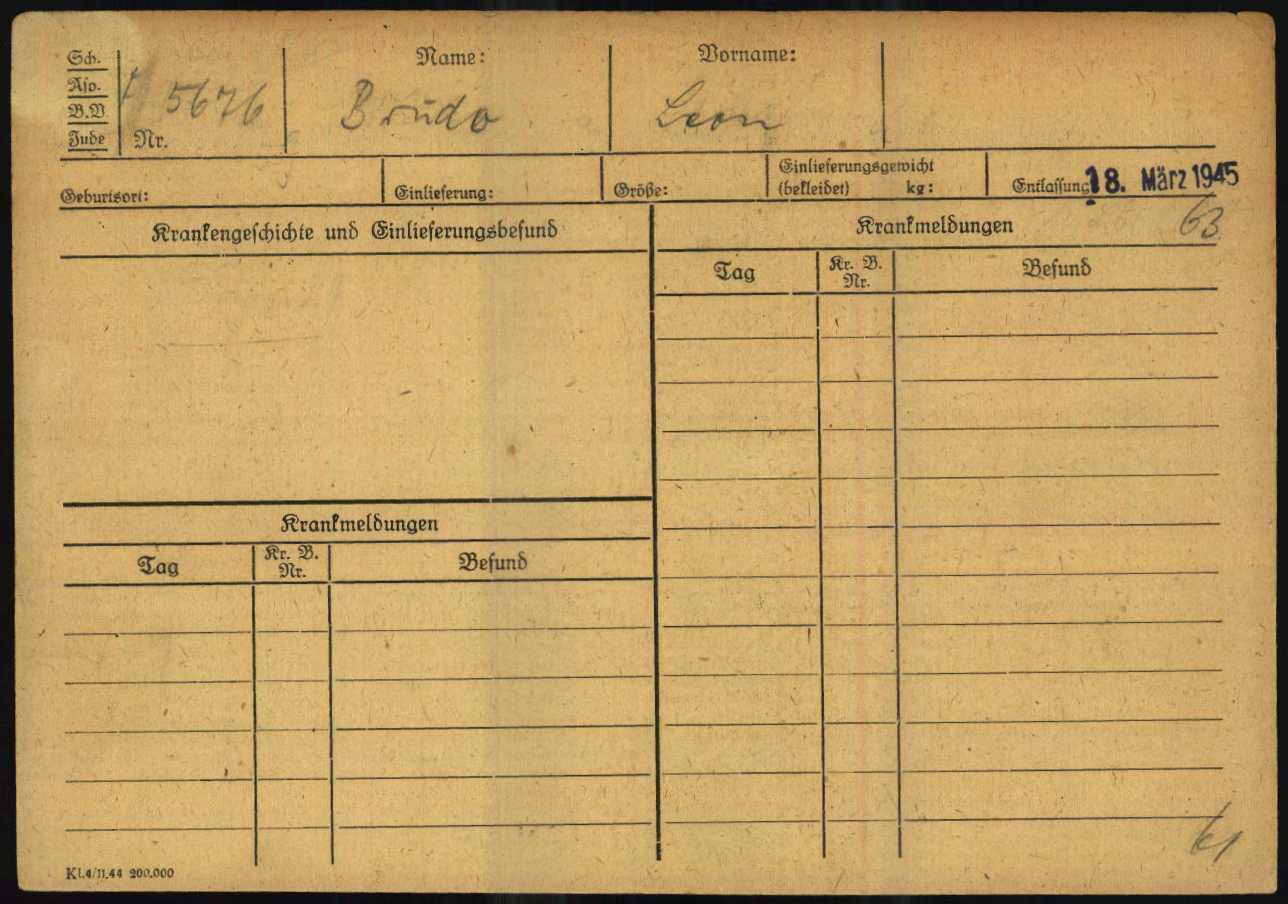 Sch.
Aso.
B.V.
Jude
Nr. 5676
Name: Brudo
Vorname: Leon
Geburtsort:
Einlieferung:
Größe:
Einlieferungsgewicht
(bekleidet) kg:
Entlassung 18. März 1945
Krankengeschichte und Einlieferungsbefund
Krankmeldungen 63
Tag Kr. B. Nr. Befund
Krankmeldungen
Tag Kr. B. Nr. Befund
61
Kl.4/11.44 200.000